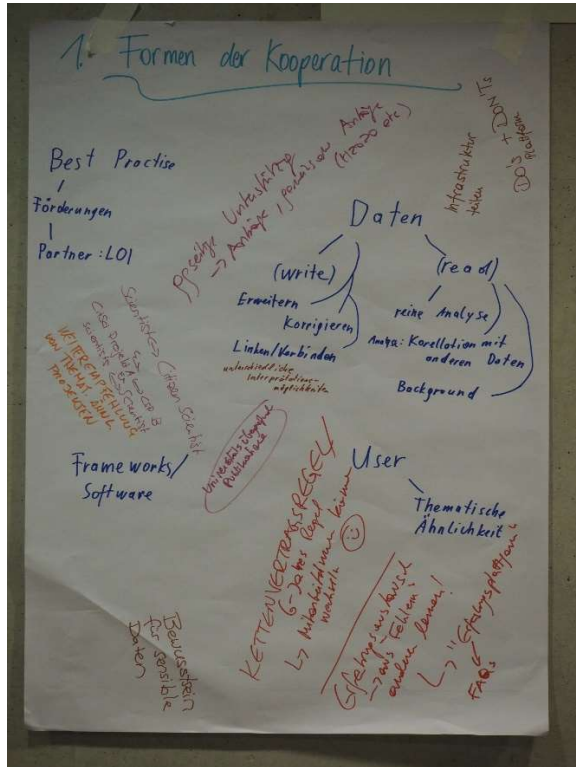 1. Formen der Kooperation
Best Practise
Förderungen
Partner: LOI
Unterstützung
→ Anträge, gemeinsame Anträge
(H2020 etc)
Infrastruktur
teilen
DO's + DON'Ts
Plattform
Daten
(write)
Erweitern
Korrigieren
Linken/Verbinden
unterschiedliche
Interpretations-
möglichkeiten
(read)
reine Analyse
Analya: Korellation mit
anderen Daten
Background
Scientist ↔ Citizen Scientist
WEITEREMPFEHLUNG
VON THEMAT. ÄHNL.
Frameworks/
Software
Publikationen
User
Thematische
Ähnlichkeit
KETTENVERTRAGSREGEL
6-Jahres Regel
↳ Mitarbeiter können
wechseln
Erfahrungsaustausch
→ aus Fehlern
anderer lernen!
↳ "Erfahrungsplattform"
FAQs
Bewusstsein
für sensible
Daten